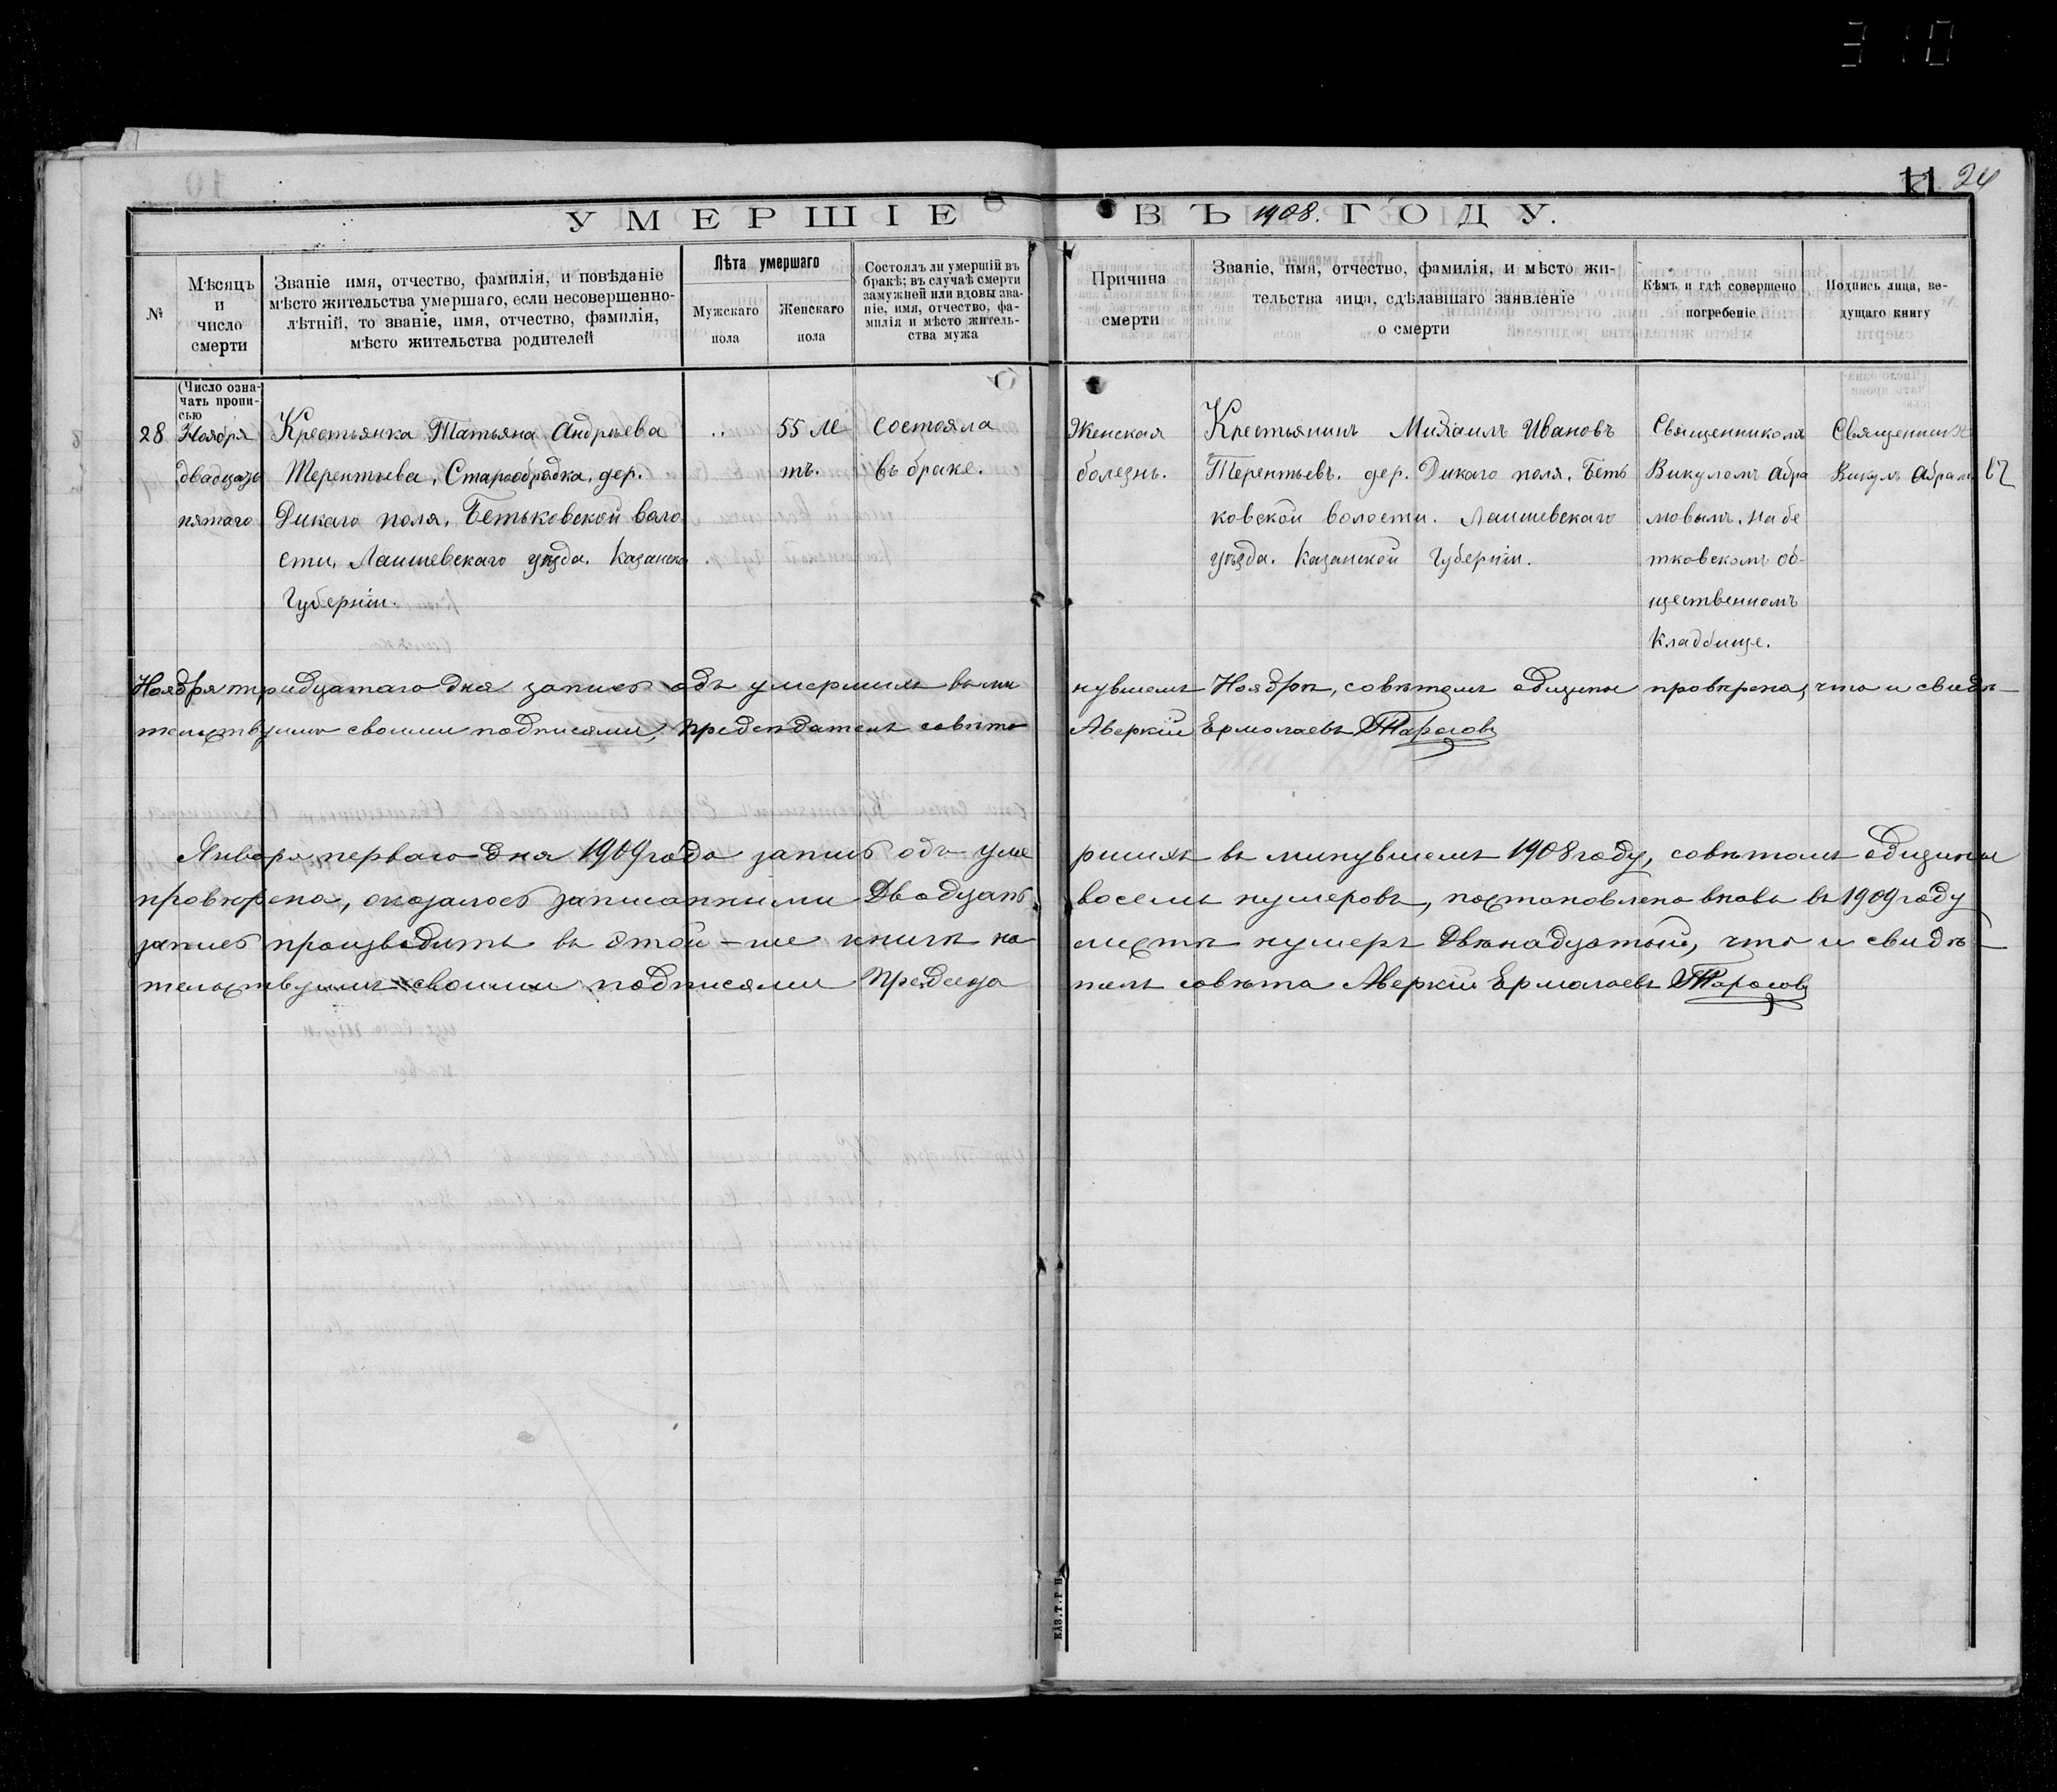 310
11 24
УМЕРШІЕ ВЪ 1908. ГОДУ.
№
Мѣсяцъ
и
число
смерти
Званіе имя, отчество, фамилія, и повѣданіе
мѣсто жительства умершаго, если несовершенно-
лѣтній, то званіе, имя, отчество, фамилія,
мѣсто жительства родителей
Лѣта умершаго
Мужскаго
пола
Женскаго
пола
Состоялъ ли умершій въ
бракѣ; въ случаѣ смерти
замужней или вдовы зва-
ніе, имя, отчество, фа-
милія и мѣсто житель-
ства мужа
Причина
смерти
Званіе, имя, отчество, фамилія, и мѣсто жи-
тельства лица, сдѣлавшаго заявленіе
о смерти
Кѣмъ и гдѣ совершено
погребеніе
Подпись лица, ве-
дущаго книгу
(Число озна-
чать пропи-
сью
28
Ноября
двадцать
пятаго
Крестьянка Татьяна Андрѣева
Терентьева, Старообрядка, дер.
Дикаго поля, Бетьковской воло
сти, Лаишевскаго уѣзда. Казанско
Губерніи.
..
55 ле
тъ.
состояла
въ браке.
Женская
болезнь.
Крестьянинъ Михаилъ Ивановъ
Терентьевъ. дер. Дикаго поля. Беть
ковской волости. Лаишевскаго
уѣзда. Казанской Губерніи.
Священникомъ
Викуломъ Абра
мовымъ. на бе
тковскомъ об-
щественномъ
кладбище.
Священник
Викулъ Абрам
Ноября тридцатаго дня запись объ умершихъ въ ми нувшемъ Ноябрѣ, совѣтомъ общины провѣрена, что и свидѣ-
тельствуимъ своими подписями, председатель совѣта Аверкій Ермолаевъ Тарасовъ
Января перваго дня 1909 года запись объ уме ршихъ въ минувшемъ 1908 году, совѣтомъ общины
провѣрена, оказалось записанными Двадцать восемь нумеровъ, постановлено вновь въ 1909 году
запись производить въ этой-же книгѣ на листѣ нумеръ Двѣнадцатой, что и свидѣ-
тельствуимъ своими подписями Председа тель совѣта Аверкій Ермолаевъ Тарасовъ
КАЗ.Т.Г.П.